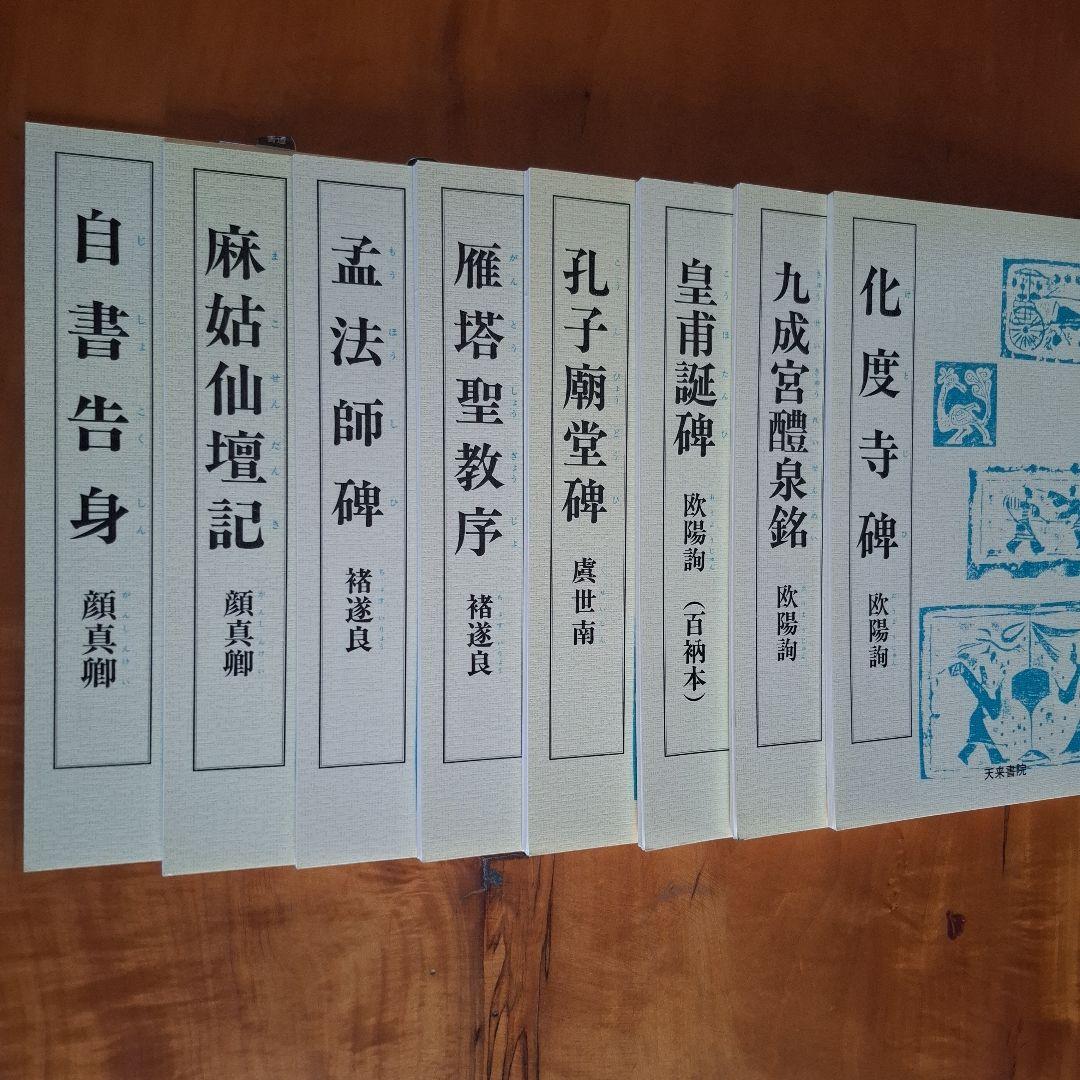 化度寺碑 欧陽詢
九成宮醴泉銘 欧陽詢
皇甫誕碑 欧陽詢 (百衲本)
孔子廟堂碑 虞世南
雁塔聖教序 褚遂良
孟法師碑 褚遂良
麻姑仙壇記 顔真卿
自書告身 顔真卿
天来書院
書道